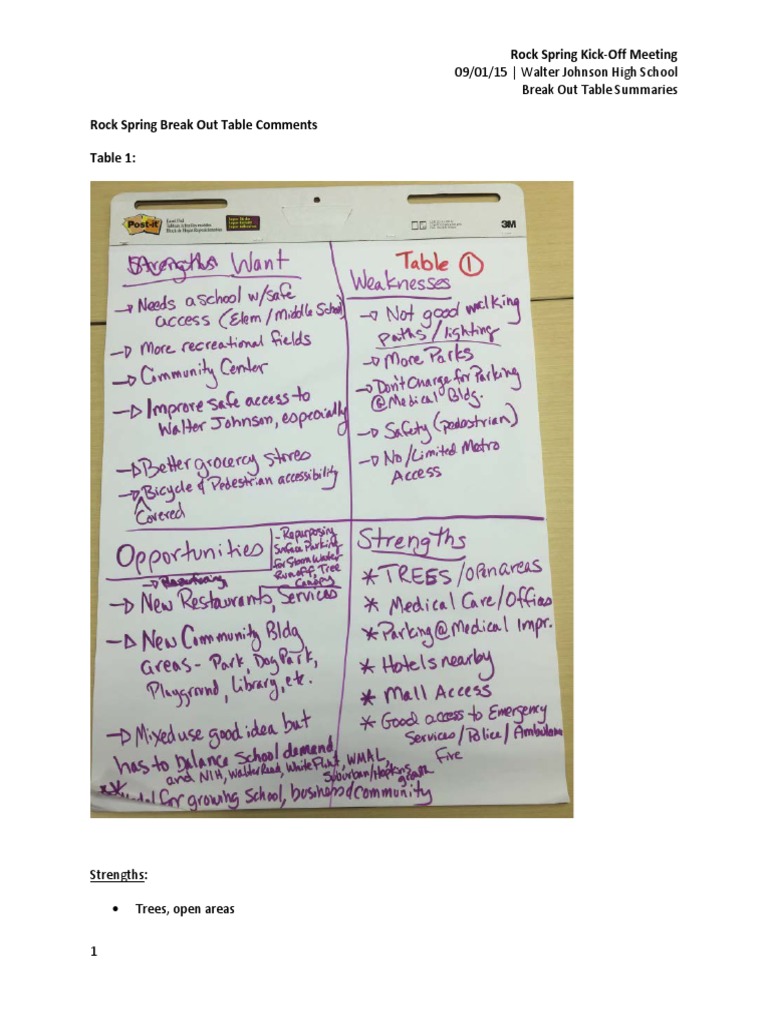 Rock Spring Kick-Off Meeting
09/01/15 | Walter Johnson High School
Break Out Table Summaries
Rock Spring Break Out Table Comments
Table 1:
Post-it
3M
Strengths Want
→ Needs a school w/safe
access (Elem / Middle School)
→ More recreational fields
→ Community Center
→ Improve safe access to
Walter Johnson, especially
→ Better grocercy stores
→ Bicycle & Pedestrian accessibility
^
Covered
Table ①
Weaknesses
→ Not good walking
paths/lighting
→ More Parks
→ Don't Charge for Parking
@Medical Bldg.
→ Safety (pedestrian)
→ No/Limited Metro
Access
Opportunities
- Repurposing
Surface Parking
for Storm Water
Runoff, Tree
Canopy
→ New Restaurants, Services
→ New Community Bldg
areas - Park, Dog Park,
Playground, Library, etc.
→ Mixed use good idea but
has to balance school demand,
and NIH, Walter Reed, White Flint, WMAL,
Suburban/Hopkins
growth
** for growing School, business & community
Strengths
* TREES/open areas
* Medical Care/Offices
* Parking @ Medical Impr.
* Hotels nearby
* Mall Access
* Good access to Emergency
Services/Police/Ambulance
Fire
Strengths:
• Trees, open areas
1